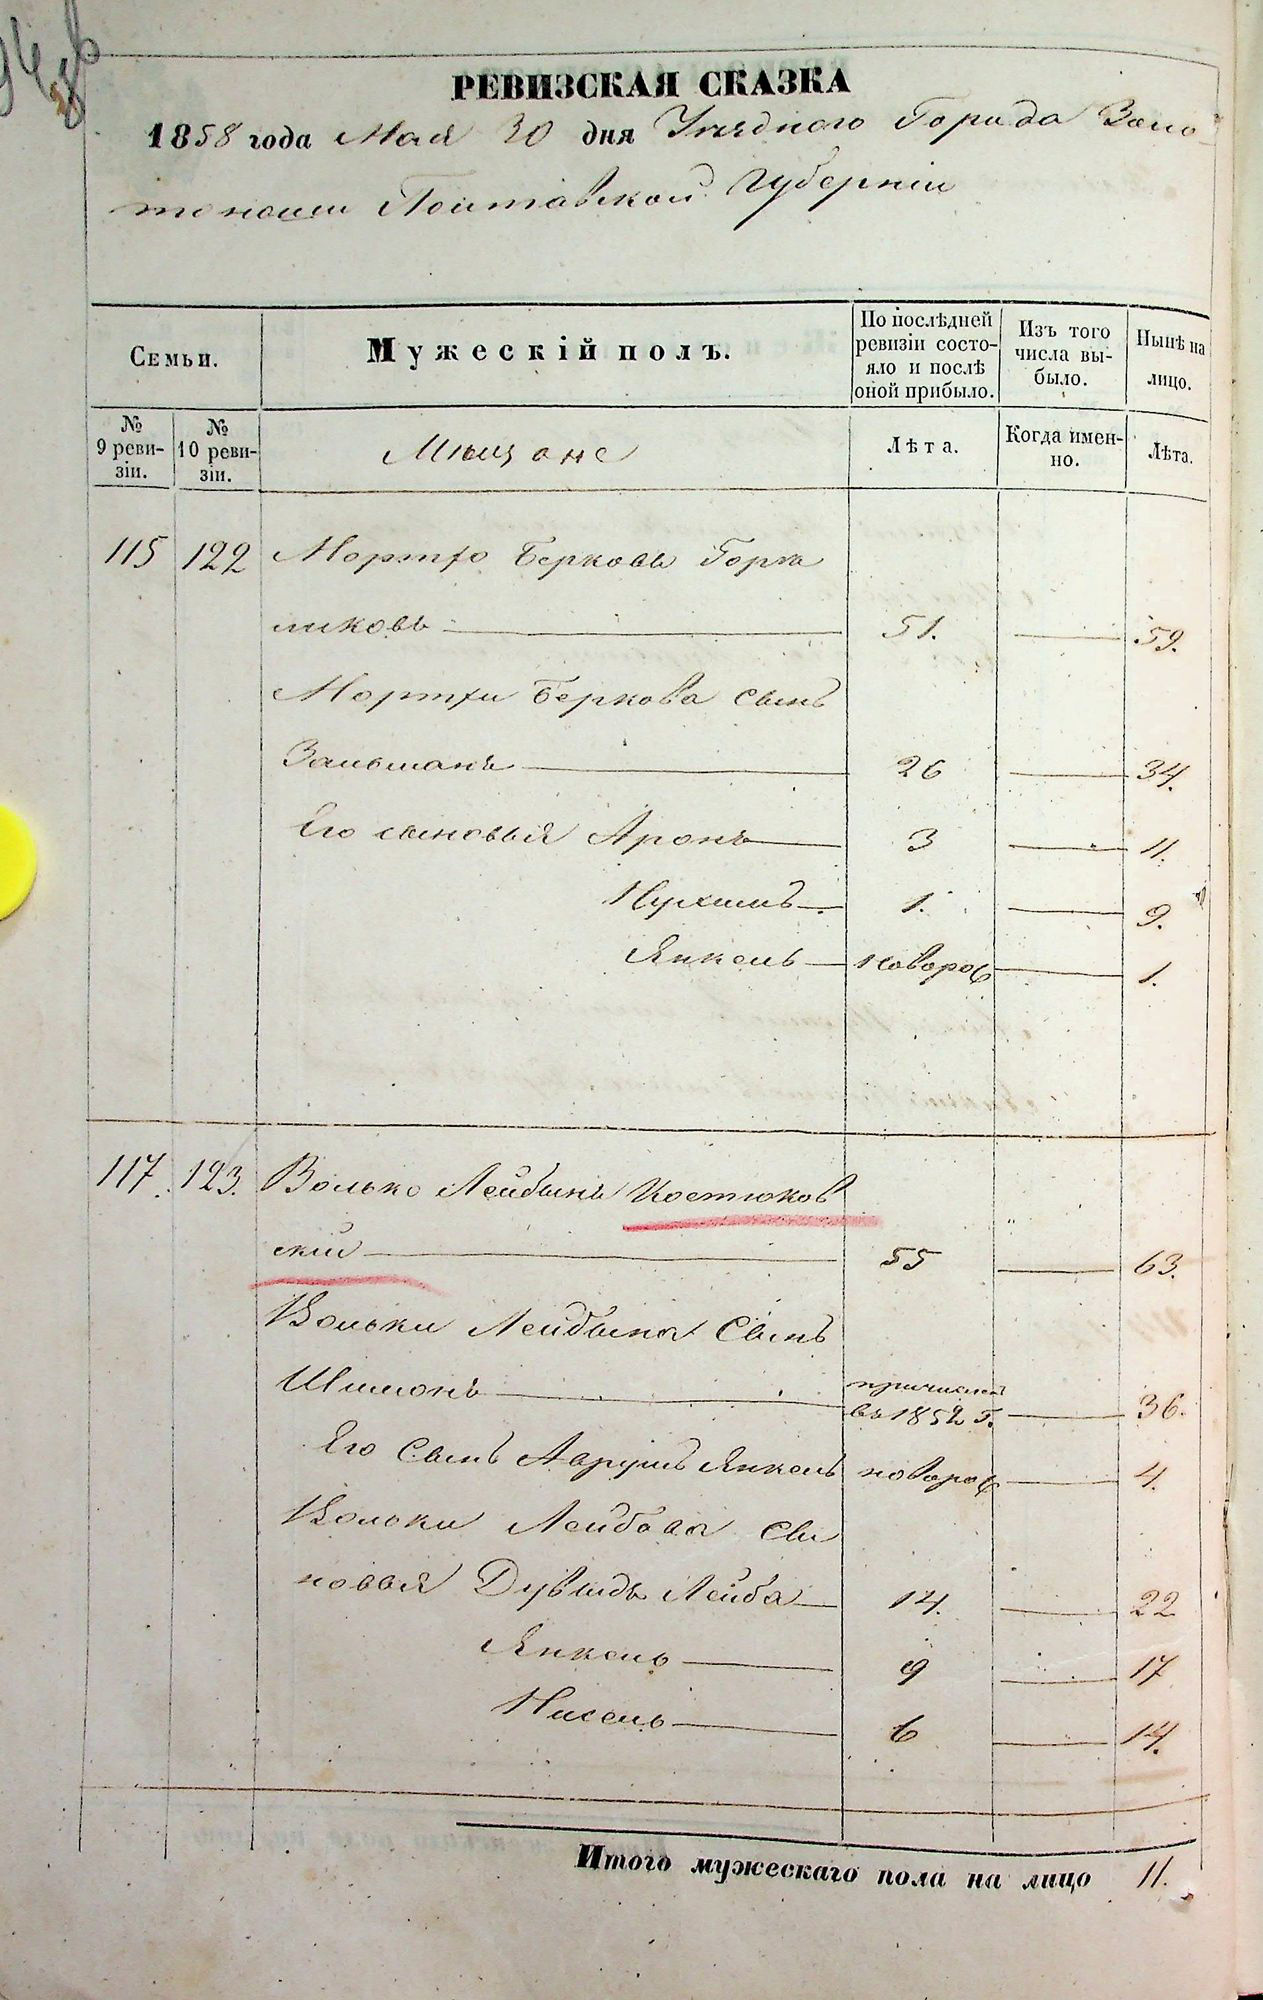 РЕВИЗСКАЯ СКАЗКА
1858 года Мая 30 дня Уѣзднаго Города Золо
тоноши Полтавской Губерніи
Семьи.
Мужескій полъ.
По послѣдней ревизіи состо-
яло и послѣ оной прибыло.
Изъ того числа вы-
было.
Нынѣ на лицо.
№ 9 реви-
зіи.
№ 10 реви-
зіи.
Мѣщане
Лѣта.
Когда имен-
но.
Лѣта.
115 122 Мортхо Берковъ Горка
ликовъ 51. 59.
Мортхи Беркова сынъ
Зальманъ 26 34.
Его сыновья Аронъ 3 11.
Нухимъ 1. 9.
Янкель новорож 1.
117. 123. Волько Лейбынъ Костюков
скій 55 63.
Вольки Лейбына Сынъ
Шимонъ причислен въ 1852 г. 36.
Его Сынъ Аврумъ Янкель новорож 4.
Вольки Лейбова Сы
новья Дувидъ Лейба 14. 22
Янкель 9 17
Нисель 6 14.
Итого мужескаго пола на лицо 11.